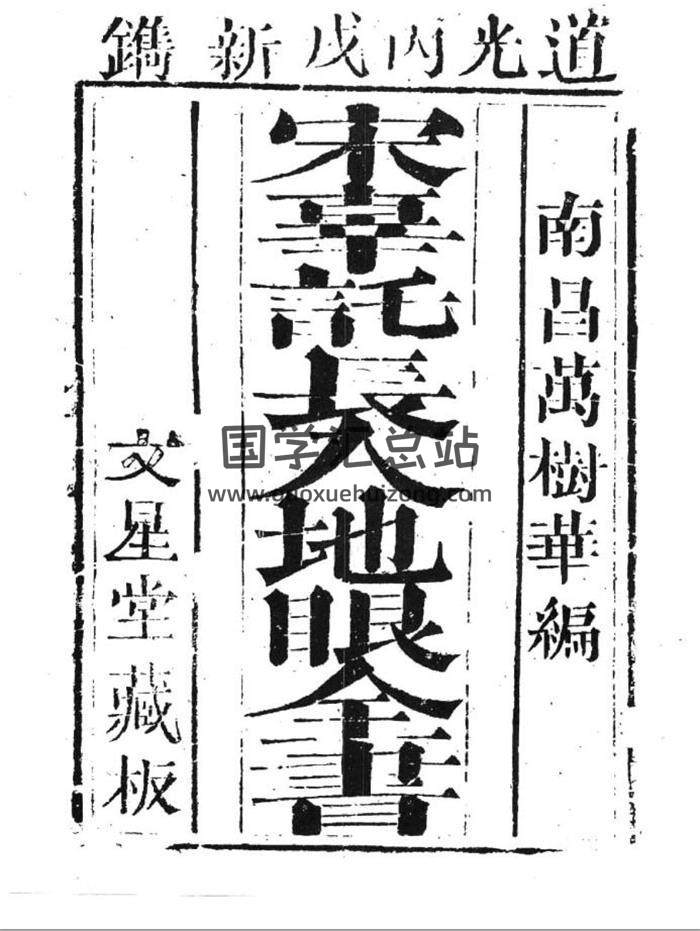 道光丙戌新鐫
南昌萬樹華編
宋辜託長入地眼全書
文星堂藏板
国学汇总站
www.guoxuehuizong.com